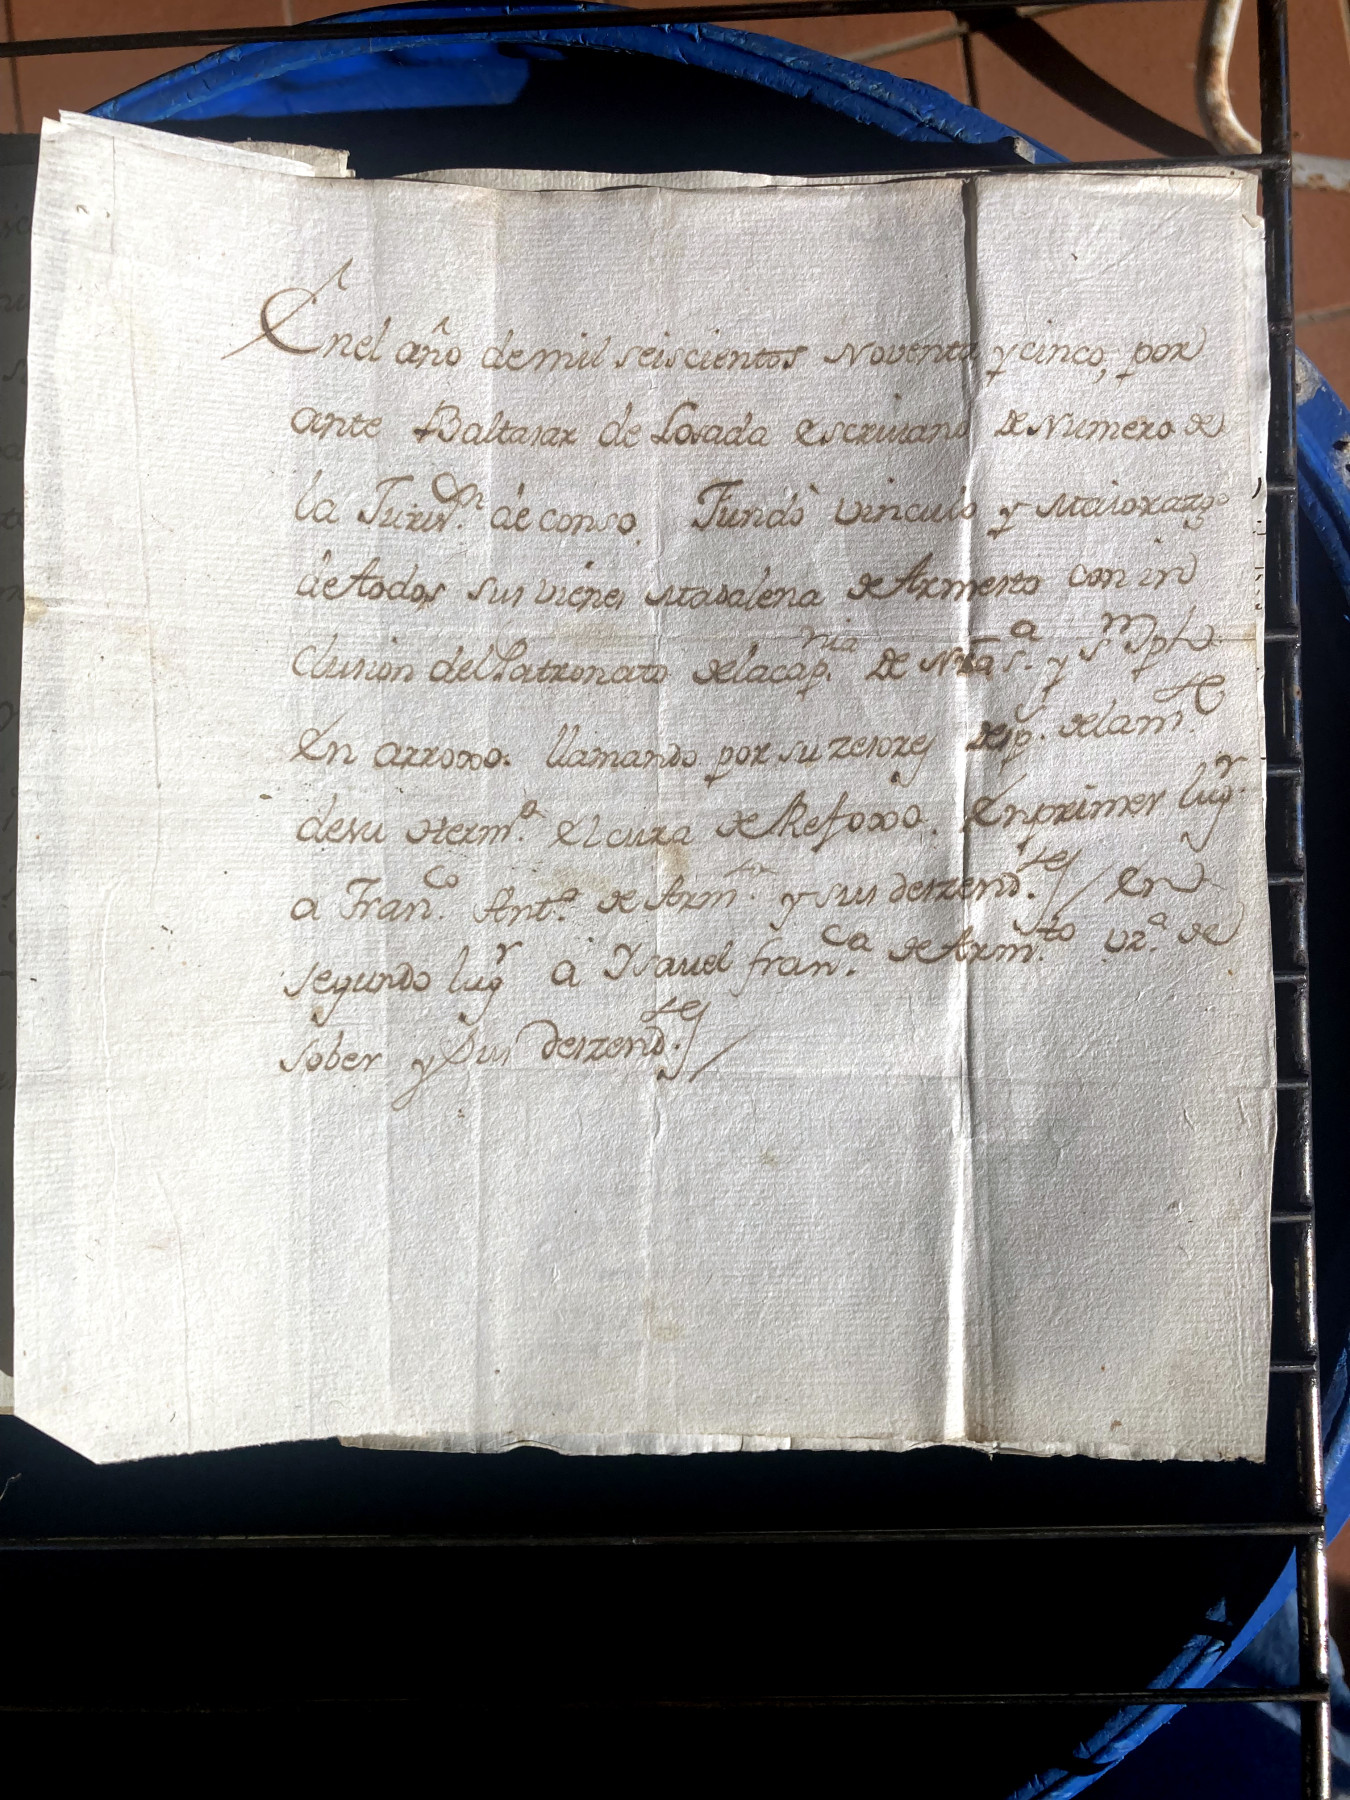 En el año de mil seiscientos Noventa y cinco, por
ante Baltasar de Losada escriuano De Numero de
la Jurisn. de conso. Fundò vinculo y Maiorazgo
de todos sus vienes Madalena de Armesto con in
clusion del Patronato de la capnia. De Nra Sa. y Sn Jph
En arroxo. llamando por suzesores Desp. de la mte
de su Hermo. El cura de Refoxo. En primer lugr.
a Franco. Anto. de Arm y sus deszendtes / En
segundo lugr a Ysauel franca. de Armto. vza. de
sober y Sus deszendtes /